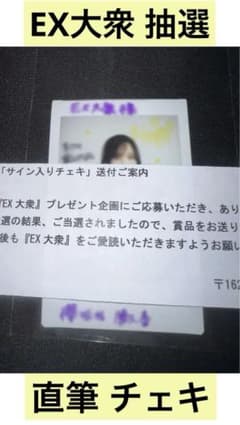 EX大衆 抽選
「サイン入りチェキ」送付ご案内
『EX 大衆』プレゼント企画にご応募いただき、あり
選の結果、ご当選されましたので、賞品をお送り
後も『EX 大衆』をご愛読いただきますようお願い
〒162
直筆 チェキ